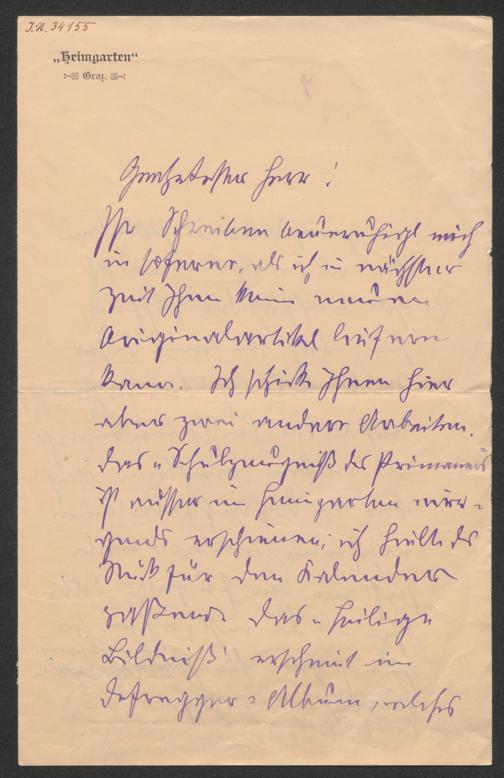 J.N. 34155
„Heimgarten“
Graz.
Geehrtester Herr!
Ihr Schreiben beunruhigt mich
in soferne, als ich in nächster
Zeit Ihnen keinen neuen
Originalartikel liefern
kann. Ich schicke Ihnen hier
aber zwei andere Arbeiten.
Das „Schulzeugniß des Primaners“
ist ausser im Heimgarten nir-
gends erschienen; ich hielte das
Stück für den Kalender
passend. Das „heilige
Bildniß“ erscheint im
Defregger-Album, welches